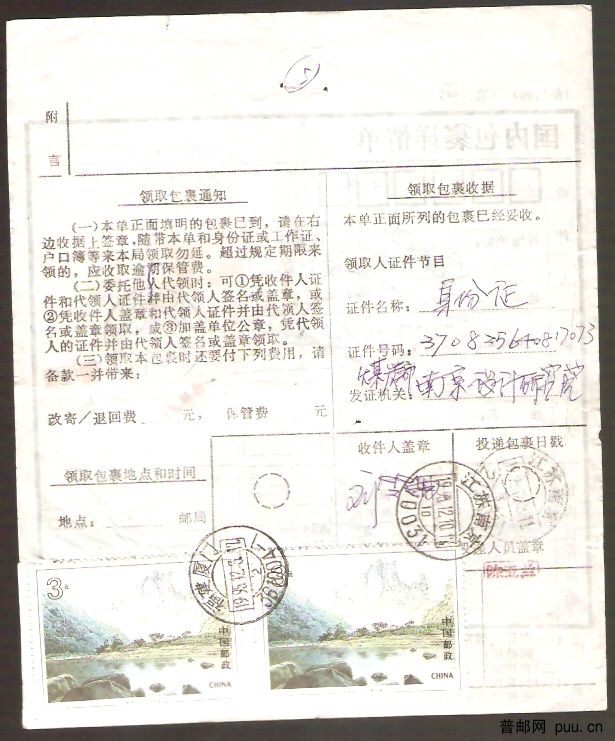 附
言
领取包裹通知
(一)本单正面填明的包裹已到，请在右
边收据上签章，随带本单和身份证或工作证、
户口簿等来本局领取勿延。超过规定期限来
领的，应收取逾期保管费。
(二)委托他人代领时：可①凭收件人证
件和代领人证件并由代领人签名或盖章，或
②凭收件人盖章和代领人证件并由代领人签
名或盖章领取，或③加盖单位公章，凭代领
人的证件并由代领人签名或盖章领取。
(三)领取本包裹时还要付下列费用，请
备款一并带来：
改寄/退回费 元， 保管费 元
领取包裹地点和时间
地点： 邮局
领取包裹收据
本单正面所列的包裹已经妥收。
领取人证件节目
证件名称： 身份证
证件号码：
发证机关 南京设计研究院
收件人盖章
投递包裹日戳
人员盖章
国内包裹详情单
江苏南京
福建厦门
3元
中国邮政
CHINA
中国邮政
CHINA
普邮网 puu.cn